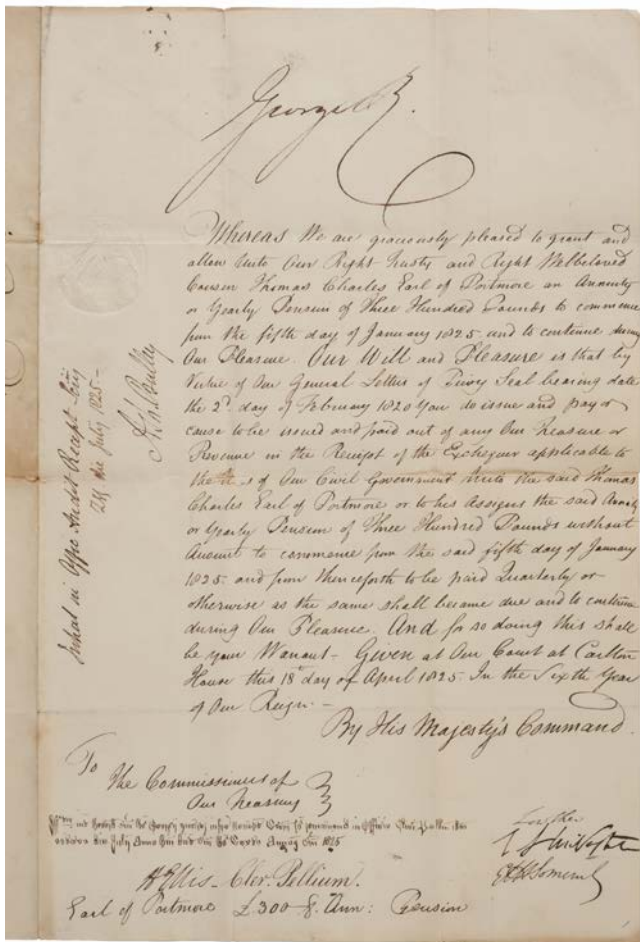 George R.
Whereas We are graciously pleased to grant and
allow unto Our Right trusty and Right Welbeloved
Cousin Thomas Charles Earl of Portmore an Annuity
or Yearly Pension of Three Hundred Pounds to commence
from the fifth day of January 1825 and to continue during
Our Pleasure. Our Will and Pleasure is that by
Virtue of Our General Letters of Privy Seal bearing date
the 2d. day of February 1820 you do issue and pay or
cause to be issued and paid out of any Our Treasure or
Revenue in the Receipt of the Exchequer applicable to
the of Our Civil Government unto the said Thomas
Charles Earl of Portmore or to his Assigns the said Annuity
or Yearly Pension of Three Hundred Pounds without
Account to commence from the said fifth day of January
1825 and from thenceforth to be paid Quarterly or
otherwise as the same shall become due and to continue
during Our Pleasure. And for so doing this shall
be your Warrant - Given at Our Court at Carlton
House this 18th day of April 1825 In the Sixth Year
of Our Reign. -
By His Majesty's Command.
To
The Commissioners of
Our Treasury
1825
H Ellis - Cler. Pellium.
Earl of Portmore £300 P. Ann: Pension
July 1825 -